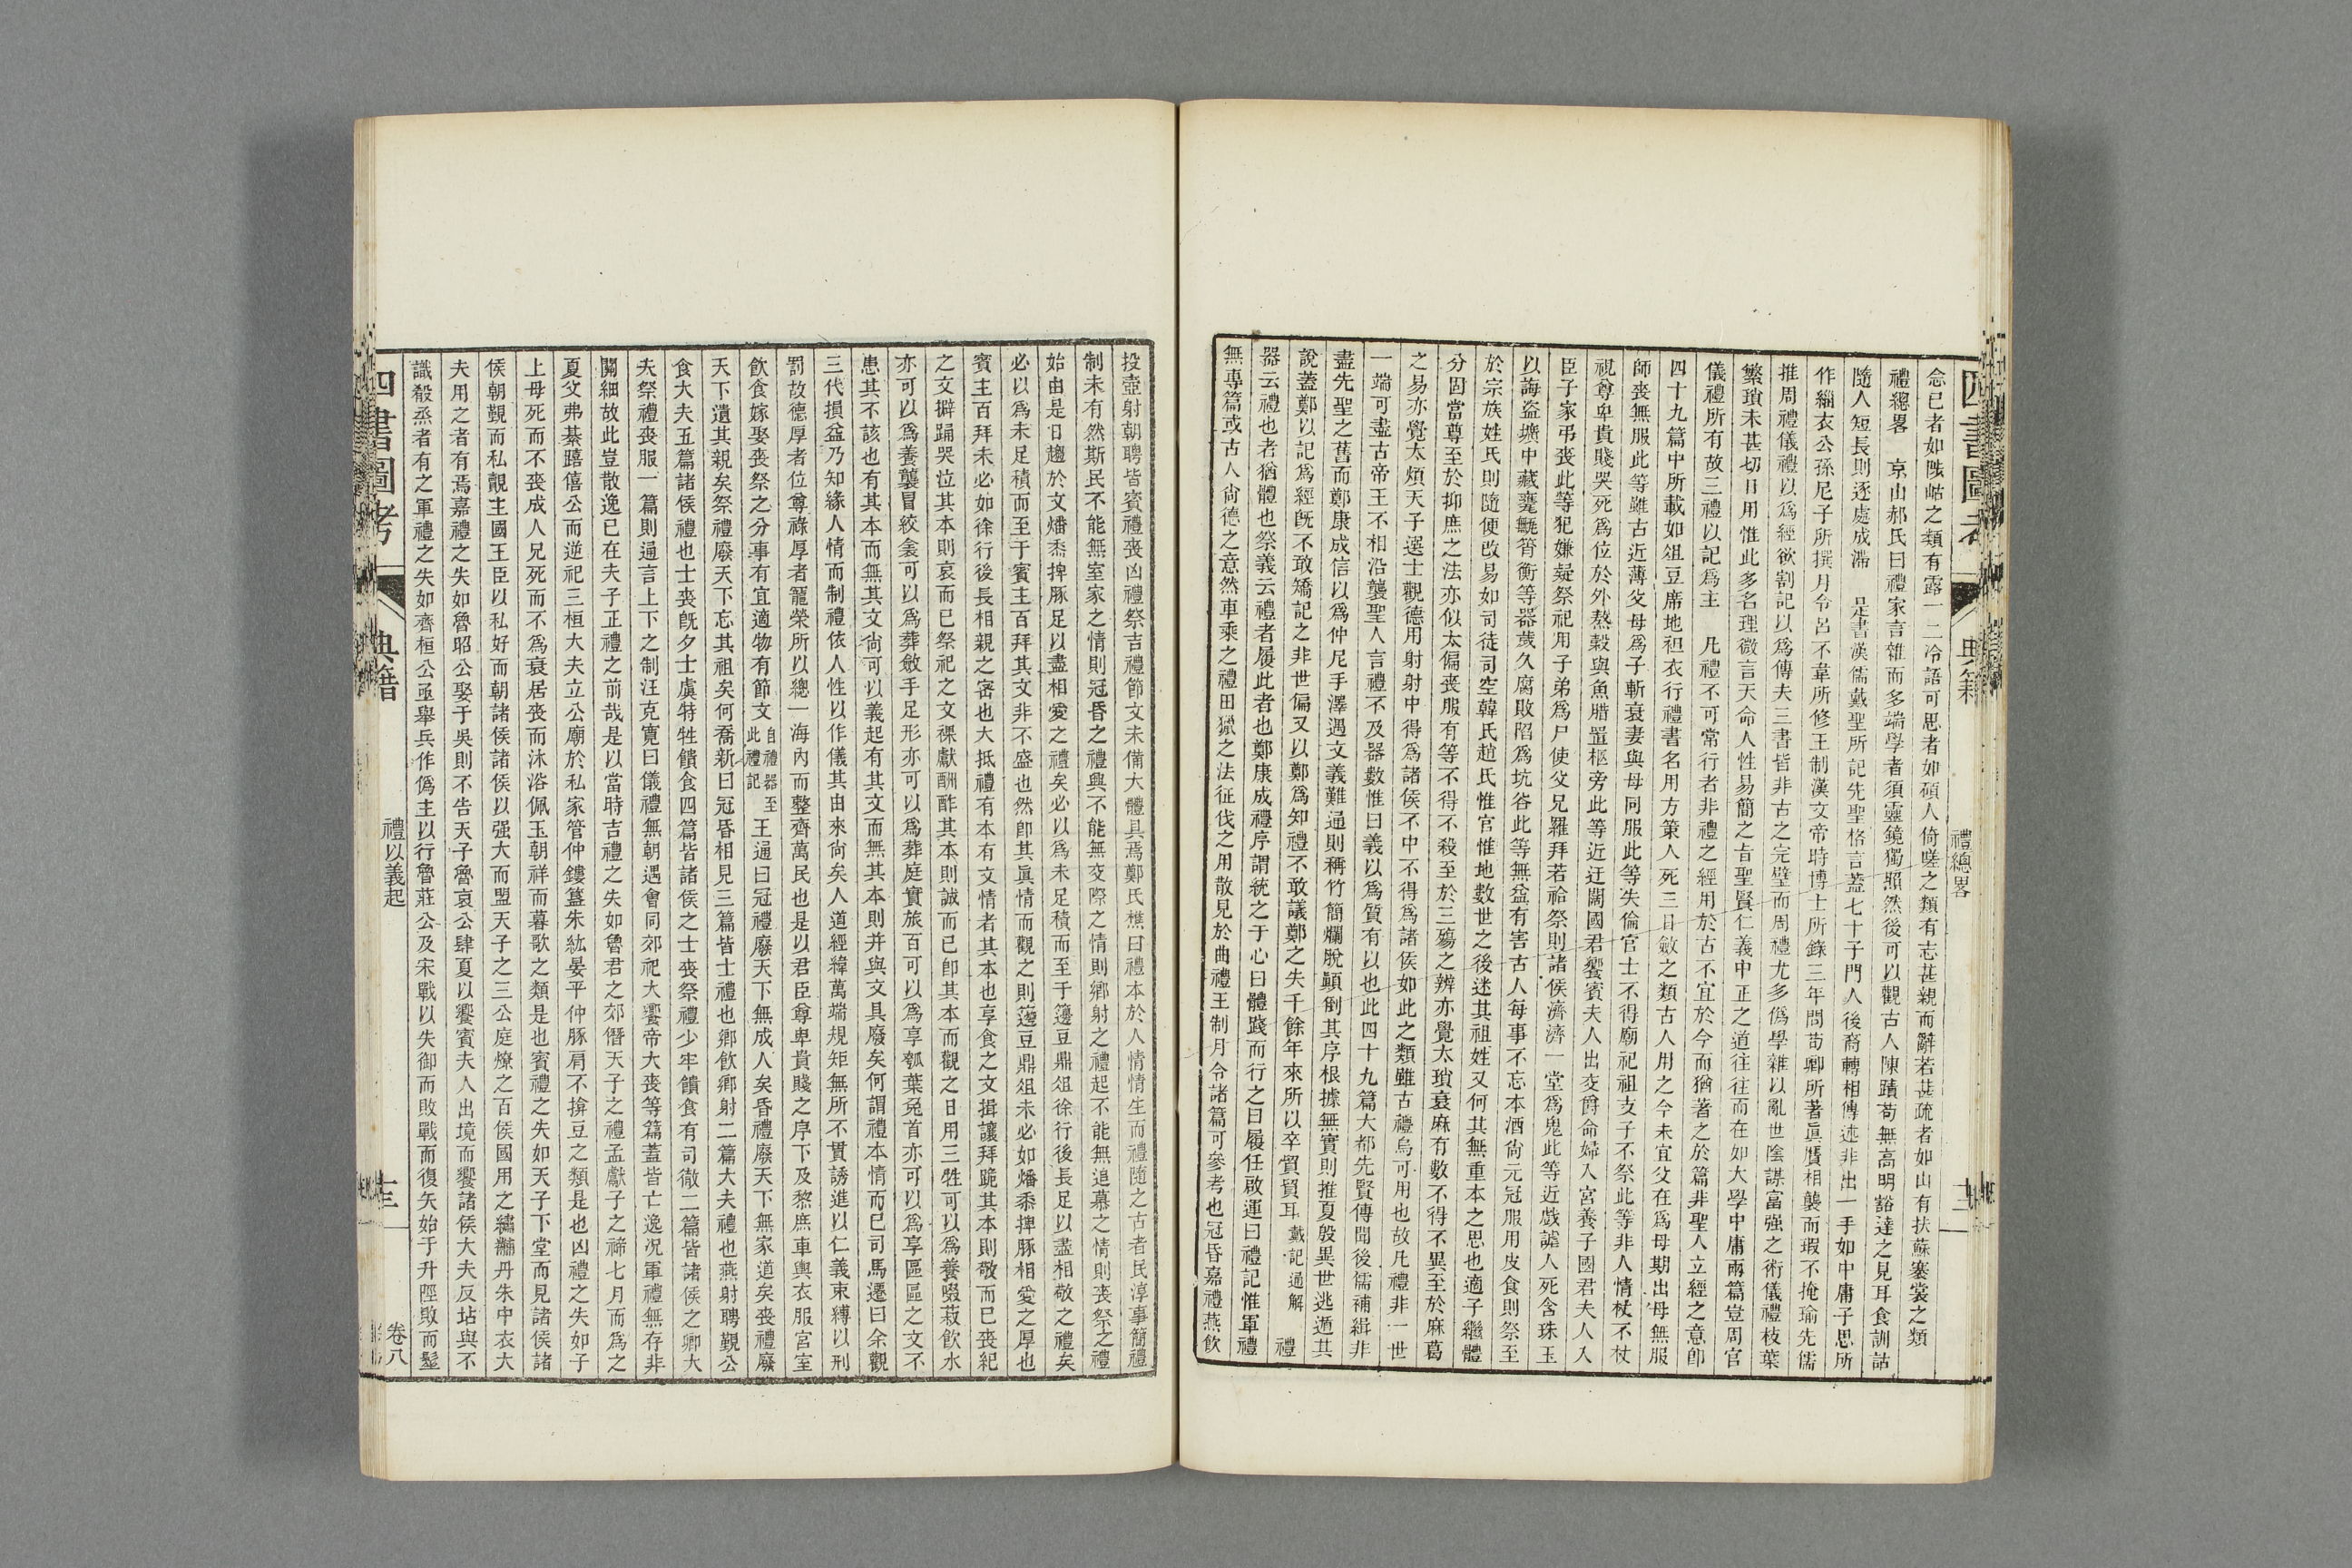 四書圖考 典籍 禮總畧 十二
念已者如陟岵之類有露一二冷語可思者如碩人倚嗟之類有志甚親而辭若甚疏者如山有扶蘇褰裳之類
禮總畧 京山郝氏曰禮家言雜而多端學者須靈鏡獨照然後可以觀古人陳蹟苟無高明豁達之見耳食訓詁
隨人短長則逐處成滯 是書漢儒戴聖所記先聖格言蓋七十子門人後裔轉相傳述非出一手如中庸子思所
作緇衣公孫尼子所撰月令呂不韋所修王制漢文帝時博士所錄三年問荀卿所著眞贋相襲而瑕不掩瑜先儒
推周禮儀禮以爲經欲割記以爲傳夫三書皆非古之完璧而周禮尤多僞學雜以亂世陰謀富强之術儀禮枝葉
繁瑣未甚切日用惟此多名理微言天命人性易簡之旨聖賢仁義中正之道往往而在如大學中庸兩篇豈周官
儀禮所有故三禮以記爲主 凡禮不可常行者非禮之經用於古不宜於今而猶著之於篇非聖人立經之意卽
四十九篇中所載如俎豆席地袒衣行禮書名用方策人死三日斂之類古人用之今未宜父在爲母期出母無服
師喪無服此等雖古近薄父母爲子斬衰妻與母同服此等失倫官士不得廟祀祖支子不祭此等非人情杖不杖
視尊卑貴賤哭死爲位於外熬穀與魚腊置柩旁此等近迂闊國君饗賓夫人出交爵命婦入宮養子國君夫人入
臣子家弔喪此等犯嫌疑祭祀用子弟爲尸使父兄羅拜若祫祭則諸侯濟濟一堂爲鬼此等近戲謔人死含珠玉
以誨盗壙中藏甕甒筲衡等器歲久腐敗陷爲坑谷此等無益有害古人每事不忘本酒尙元冠服用皮食則祭至
於宗族姓氏則隨便改易如司徒司空韓氏趙氏惟官惟地數世之後迷其祖姓又何其無重本之思也適子繼體
分固當尊至於抑庶之法亦似太偏喪服有等不得不殺至於三殤之辨亦覺太瑣衰麻有數不得不異至於麻葛
之易亦覺太煩天子選士觀德用射射中得爲諸侯不中不得爲諸侯如此之類雖古禮烏可用也故凡禮非一世
一端可盡古帝王不相沿襲聖人言禮不及器數惟曰義以爲質有以也此四十九篇大都先賢傳聞後儒補緝非
盡先聖之舊而鄭康成信以爲仲尼手澤遇文義難通則稱竹簡爛脫顚倒其序根據無實則推夏殷異世逃遁其
說蓋鄭以記爲經旣不敢矯記之非世偏又以鄭爲知禮不敢議鄭之失千餘年來所以卒貿貿耳 戴記通解 禮
器云禮也者猶體也祭義云禮者履此者也鄭康成禮序謂統之于心曰體踐而行之曰履任啟運曰禮記惟軍禮
無專篇或古人尙德之意然車乘之禮田獵之法征伐之用散見於曲禮王制月令諸篇可參考也冠昏嘉禮燕飮
投壺射朝聘皆賓禮喪凶禮祭吉禮節文未備大體具焉鄭氏樵曰禮本於人情情生而禮隨之古者民淳事簡禮
制未有然斯民不能無室家之情則冠昏之禮興不能無交際之情則鄉射之禮起不能無追慕之情則喪祭之禮
始由是日趨於文燔黍捭豚足以盡相愛之禮矣必以爲未足積而至于籩豆鼎俎徐行後長足以盡相敬之禮矣
必以爲未足積而至于賓主百拜其文非不盛也然卽其眞情而觀之則籩豆鼎俎未必如燔黍捭豚相愛之厚也
賓主百拜未必如徐行後長相親之密也大抵禮有本有文情者其本也享食之文揖讓拜跪其本則敬而已喪紀
之文擗踊哭泣其本則哀而已祭祀之文祼獻酬酢其本則誠而已卽其本而觀之日用三牲可以爲養啜菽飮水
亦可以爲養襲冒絞衾可以爲葬斂手足形亦可以爲葬庭實旅百可以爲享瓠葉兔首亦可以爲享區區之文不
患其不該也有其本而無其文尙可以義起有其文而無其本則并與文具廢矣何謂禮本情而已司馬遷曰余觀
三代損益乃知緣人情而制禮依人性以作儀其由來尙矣人道經緯萬端規矩無所不貫誘進以仁義束縛以刑
罰故德厚者位尊祿厚者寵榮所以總一海內而整齊萬民也是以君臣尊卑貴賤之序下及黎庶車輿衣服宮室
飮食嫁娶喪祭之分事有宜適物有節文 自禮器至此禮記 王通曰冠禮廢天下無成人矣昏禮廢天下無家道矣喪禮廢
天下遺其親矣祭禮廢天下忘其祖矣何喬新曰冠昏相見三篇皆士禮也鄉飮鄉射二篇大夫禮也燕射聘覲公
食大夫五篇諸侯禮也士喪旣夕士虞特牲饋食四篇皆諸侯之士喪祭禮少牢饋食有司徹二篇皆諸侯之卿大
夫祭禮喪服一篇則通言上下之制汪克寬曰儀禮無朝遇會同郊祀大饗帝大喪等篇蓋皆亡逸況軍禮無存非
闕細故此豈散逸已在夫子正禮之前哉是以當時吉禮之失如魯君之郊僭天子之禮孟獻子之禘七月而爲之
夏父弗綦躋僖公而逆祀三桓大夫立公廟於私家管仲鏤簋朱紘晏平仲豚肩不揜豆之類是也凶禮之失如子
上母死而不喪成人兄死而不爲衰居喪而沐浴佩玉朝祥而暮歌之類是也賓禮之失如天子下堂而見諸侯諸
侯朝覲而私覿主國王臣以私好而朝諸侯諸侯以强大而盟天子之三公庭燎之百侯國用之繡黼丹朱中衣大
夫用之者有焉嘉禮之失如魯昭公娶于吳則不告天子魯哀公肆夏以饗賓夫人出境而饗諸侯大夫反坫與不
識殽烝者有之軍禮之失如齊桓公亟舉兵作僞主以行魯莊公及宋戰以失御而敗戰而復矢始于升陘敗而髽
四書圖考 典籍 禮以義起 十三 卷八